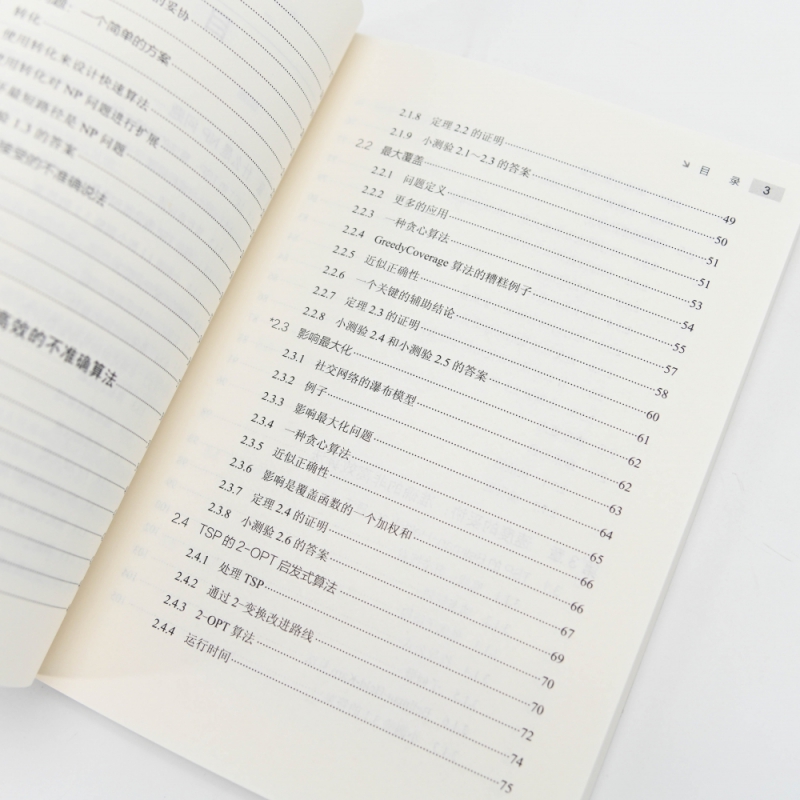 的妥协
一个简单的方案
转化
使用转化来设计快速算法
使用转化对 NP 问题进行扩展
最短路径是 NP 问题
1.3 的答案
接受的不准确说法
高效的不准确算法
目 录 3
2.1.8 定理 2.2 的证明 49
2.1.9 小测验 2.1～2.3 的答案 50
2.2 最大覆盖 51
2.2.1 问题定义 51
2.2.2 更多的应用 53
2.2.3 一种贪心算法 54
2.2.4 GreedyCoverage 算法的糟糕例子 55
2.2.5 近似正确性 57
2.2.6 一个关键的辅助结论 58
2.2.7 定理 2.3 的证明 60
2.2.8 小测验 2.4 和小测验 2.5 的答案 61
*2.3 影响最大化 62
2.3.1 社交网络的瀑布模型 62
2.3.2 例子 63
2.3.3 影响最大化问题 64
2.3.4 一种贪心算法 65
2.3.5 近似正确性 66
2.3.6 影响是覆盖函数的一个加权和 66
2.3.7 定理 2.4 的证明 67
2.3.8 小测验 2.6 的答案 69
2.4 TSP 的 2-OPT 启发式算法 70
2.4.1 处理 TSP 70
2.4.2 通过 2-变换改进路线 72
2.4.3 2-OPT 算法 74
2.4.4 运行时间 75